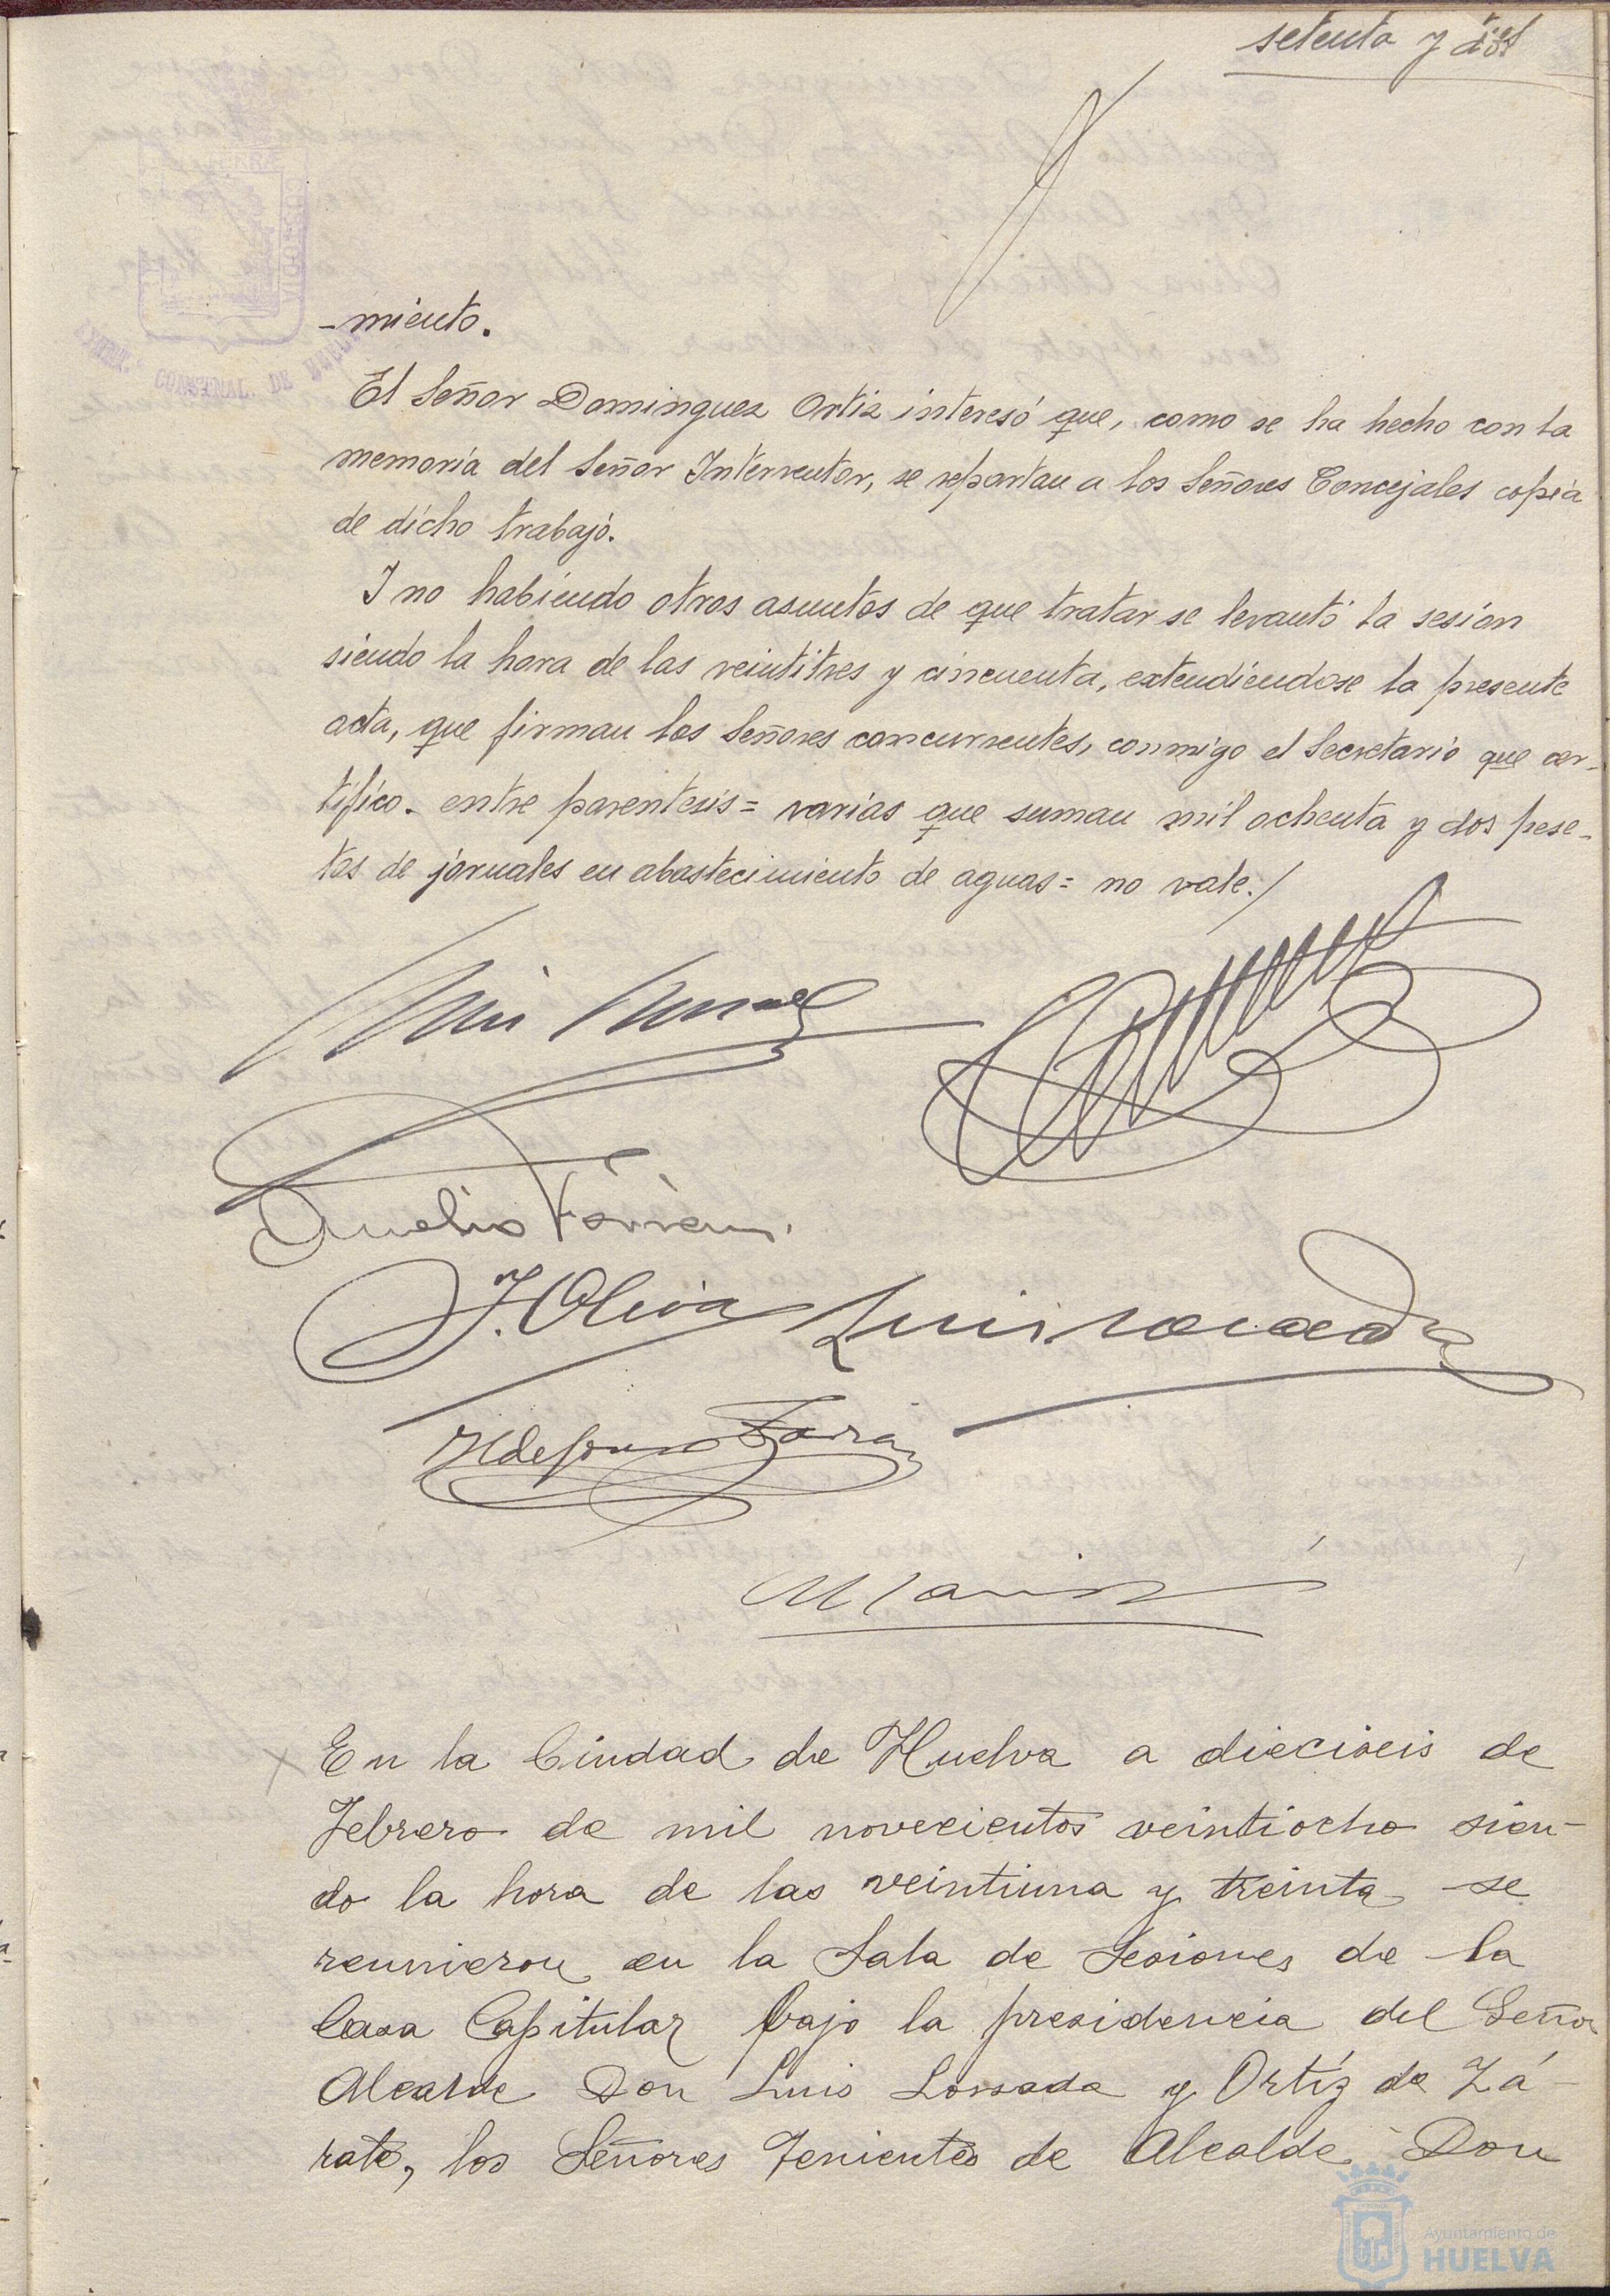 setenta y
-miento.
El Señor Dominguez Ortiz interesó que, como se ha hecho con la
memoria del Señor Interventor, se repartan a los Señores Concejales copia
de dicho trabajo.
Y no habiendo otros asuntos de que tratar se levantó la sesion
siendo la hora de las veintitres y cincuenta, extendiendose la presente
acta, que firman los Señores concurrentes, conmigo el Secretario que cer-
tifico. entre parentesis = varias que suman mil ochenta y dos pese-
tas de jornales en abastecimiento de aguas = no vale./
J. Oliva
Ildefonso
En la Ciudad de Huelva a dieciseis de
Febrero de mil novecientos veintiocho sien-
do la hora de las veintiuna y treinta se
reunieron en la Sala de Sesiones de la
Casa Capitular bajo la presidencia del Señor
Alcalde Don Luis Lossada y Ortíz de Zá-
rate, los Señores Tenientes de Alcalde Don
Ayuntamiento de
HUELVA